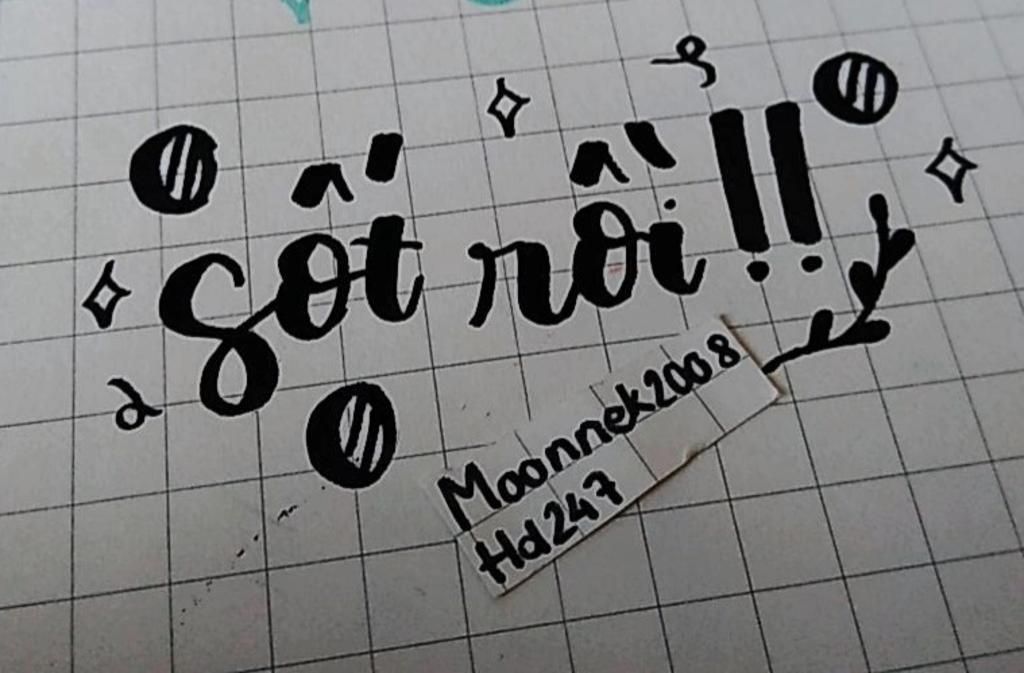 sốt rồi!!
Moonnek2008
Hd247